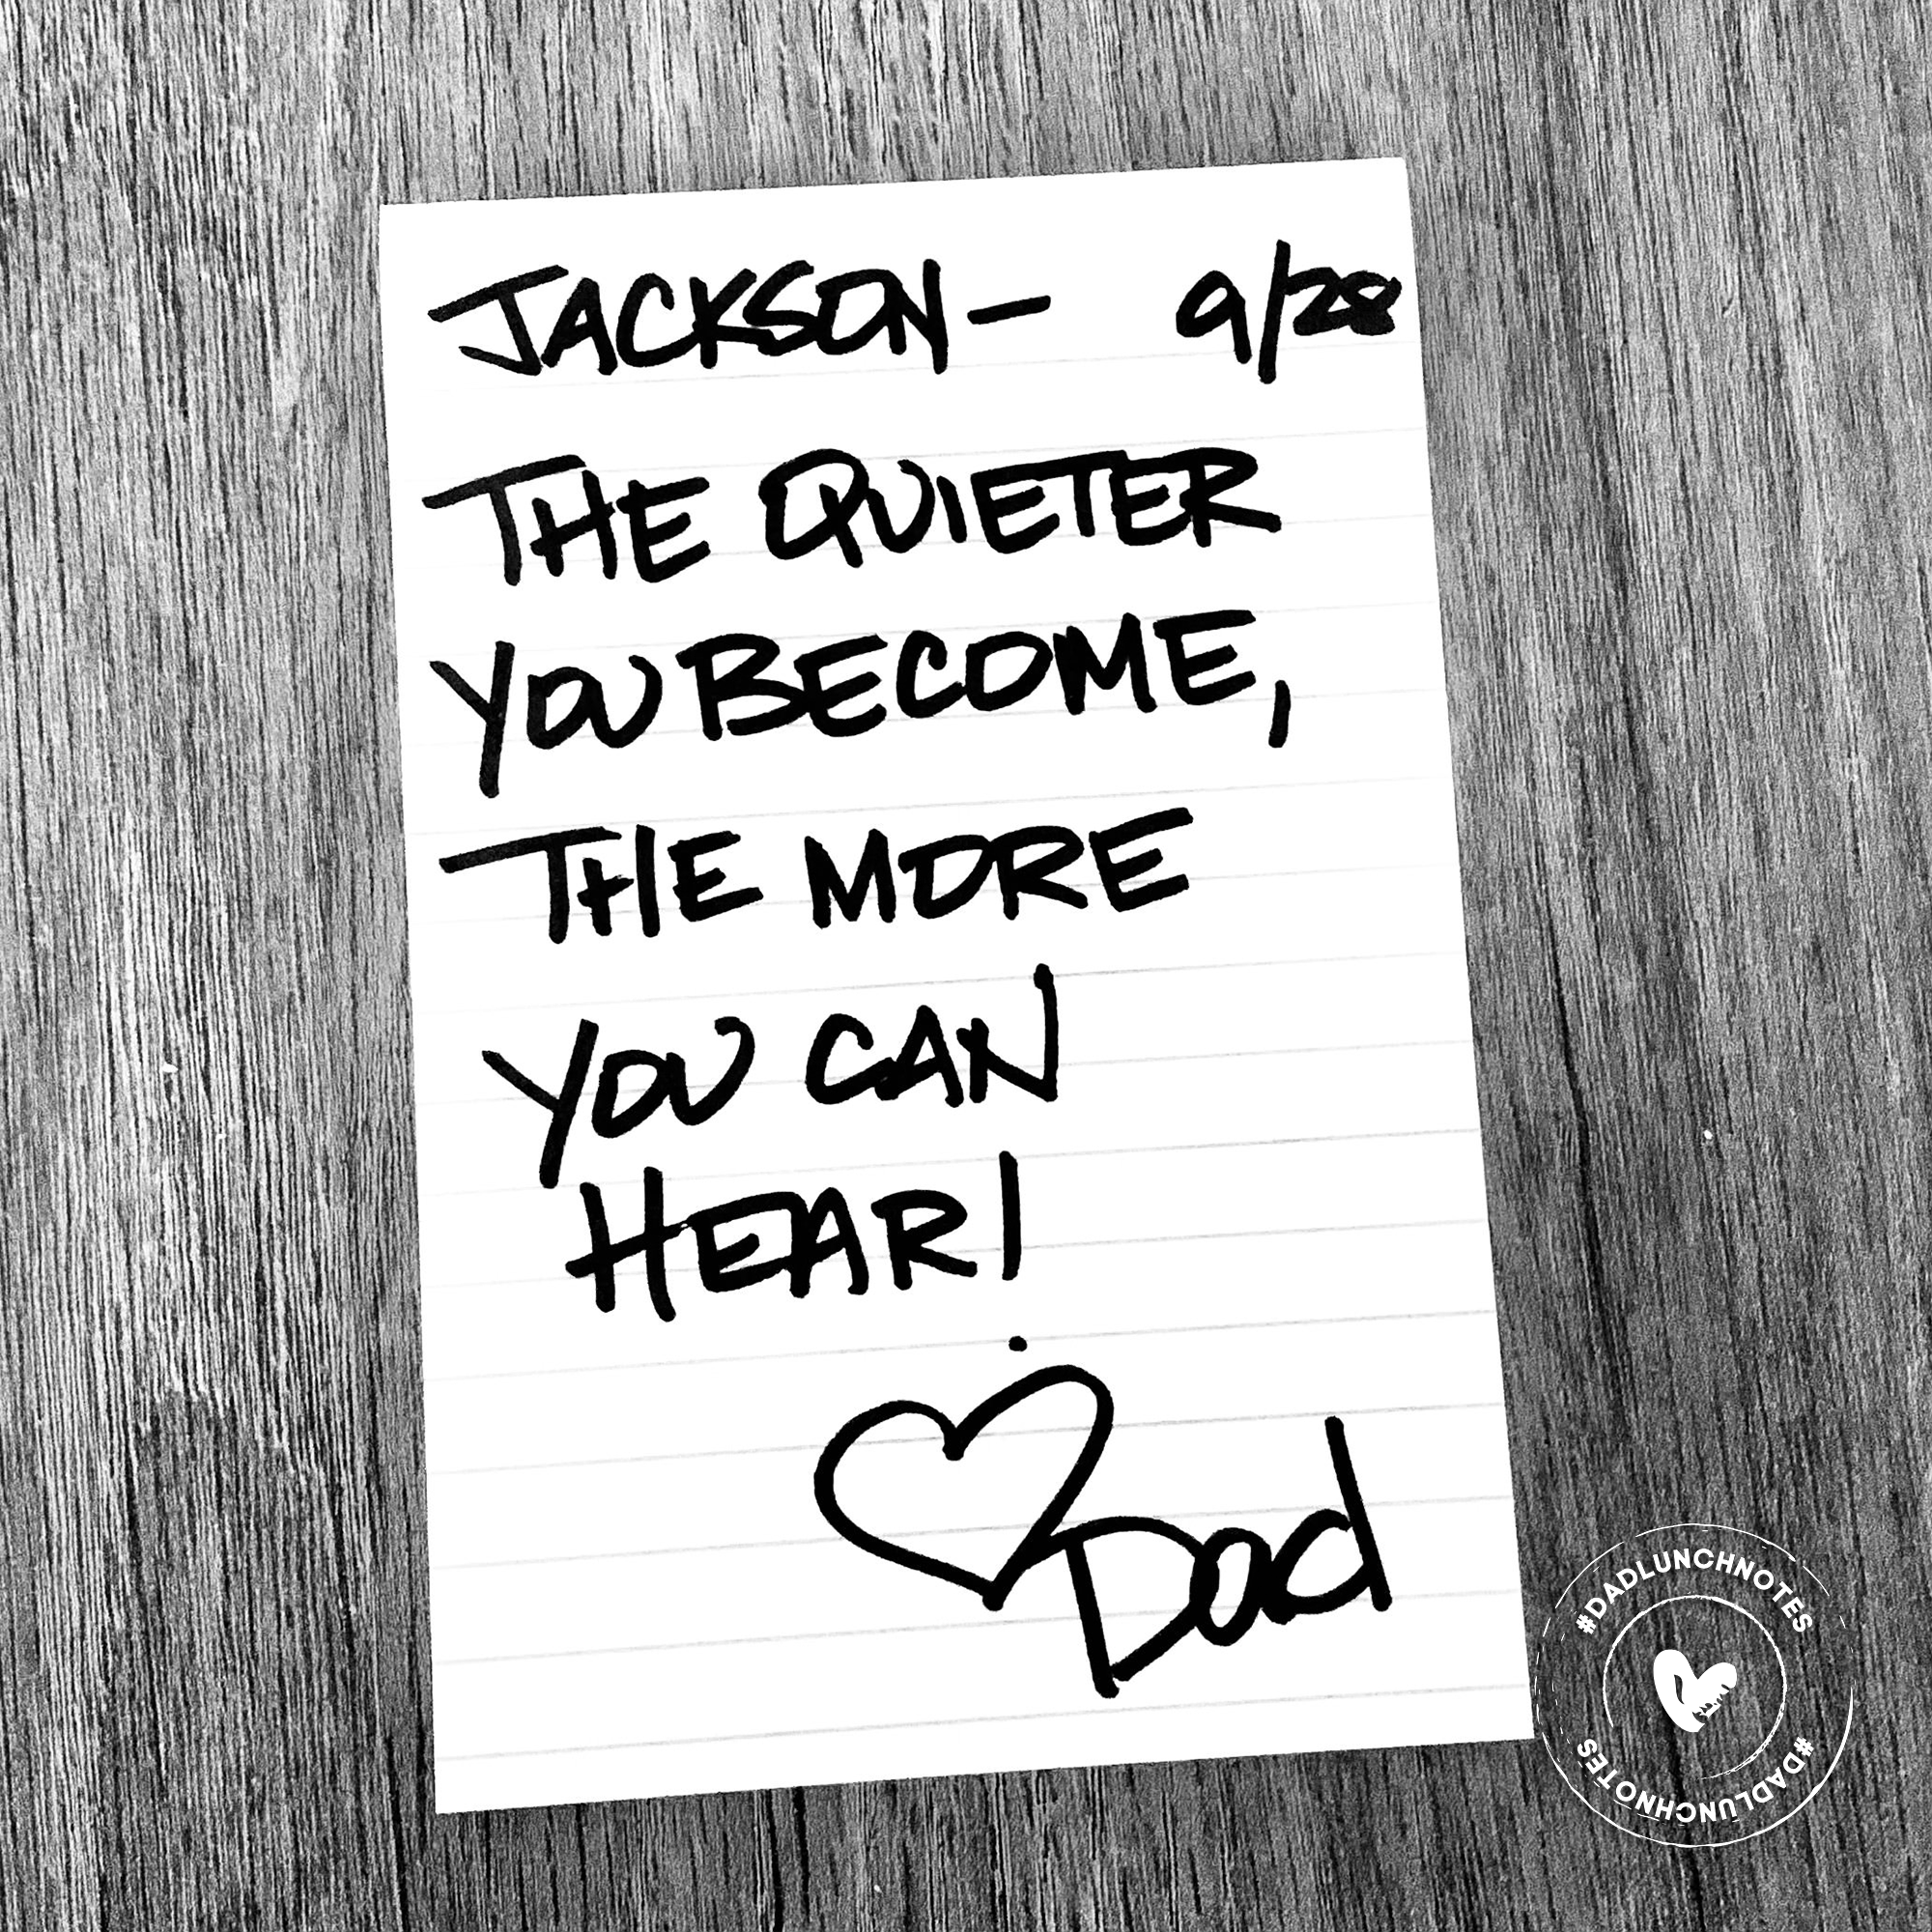 JACKSON— 9/28
THE QUIETER
YOU BECOME,
THE MORE
YOU CAN
HEAR!
Dad
#DADLUNCHNOTES
#DADLUNCHNOTES